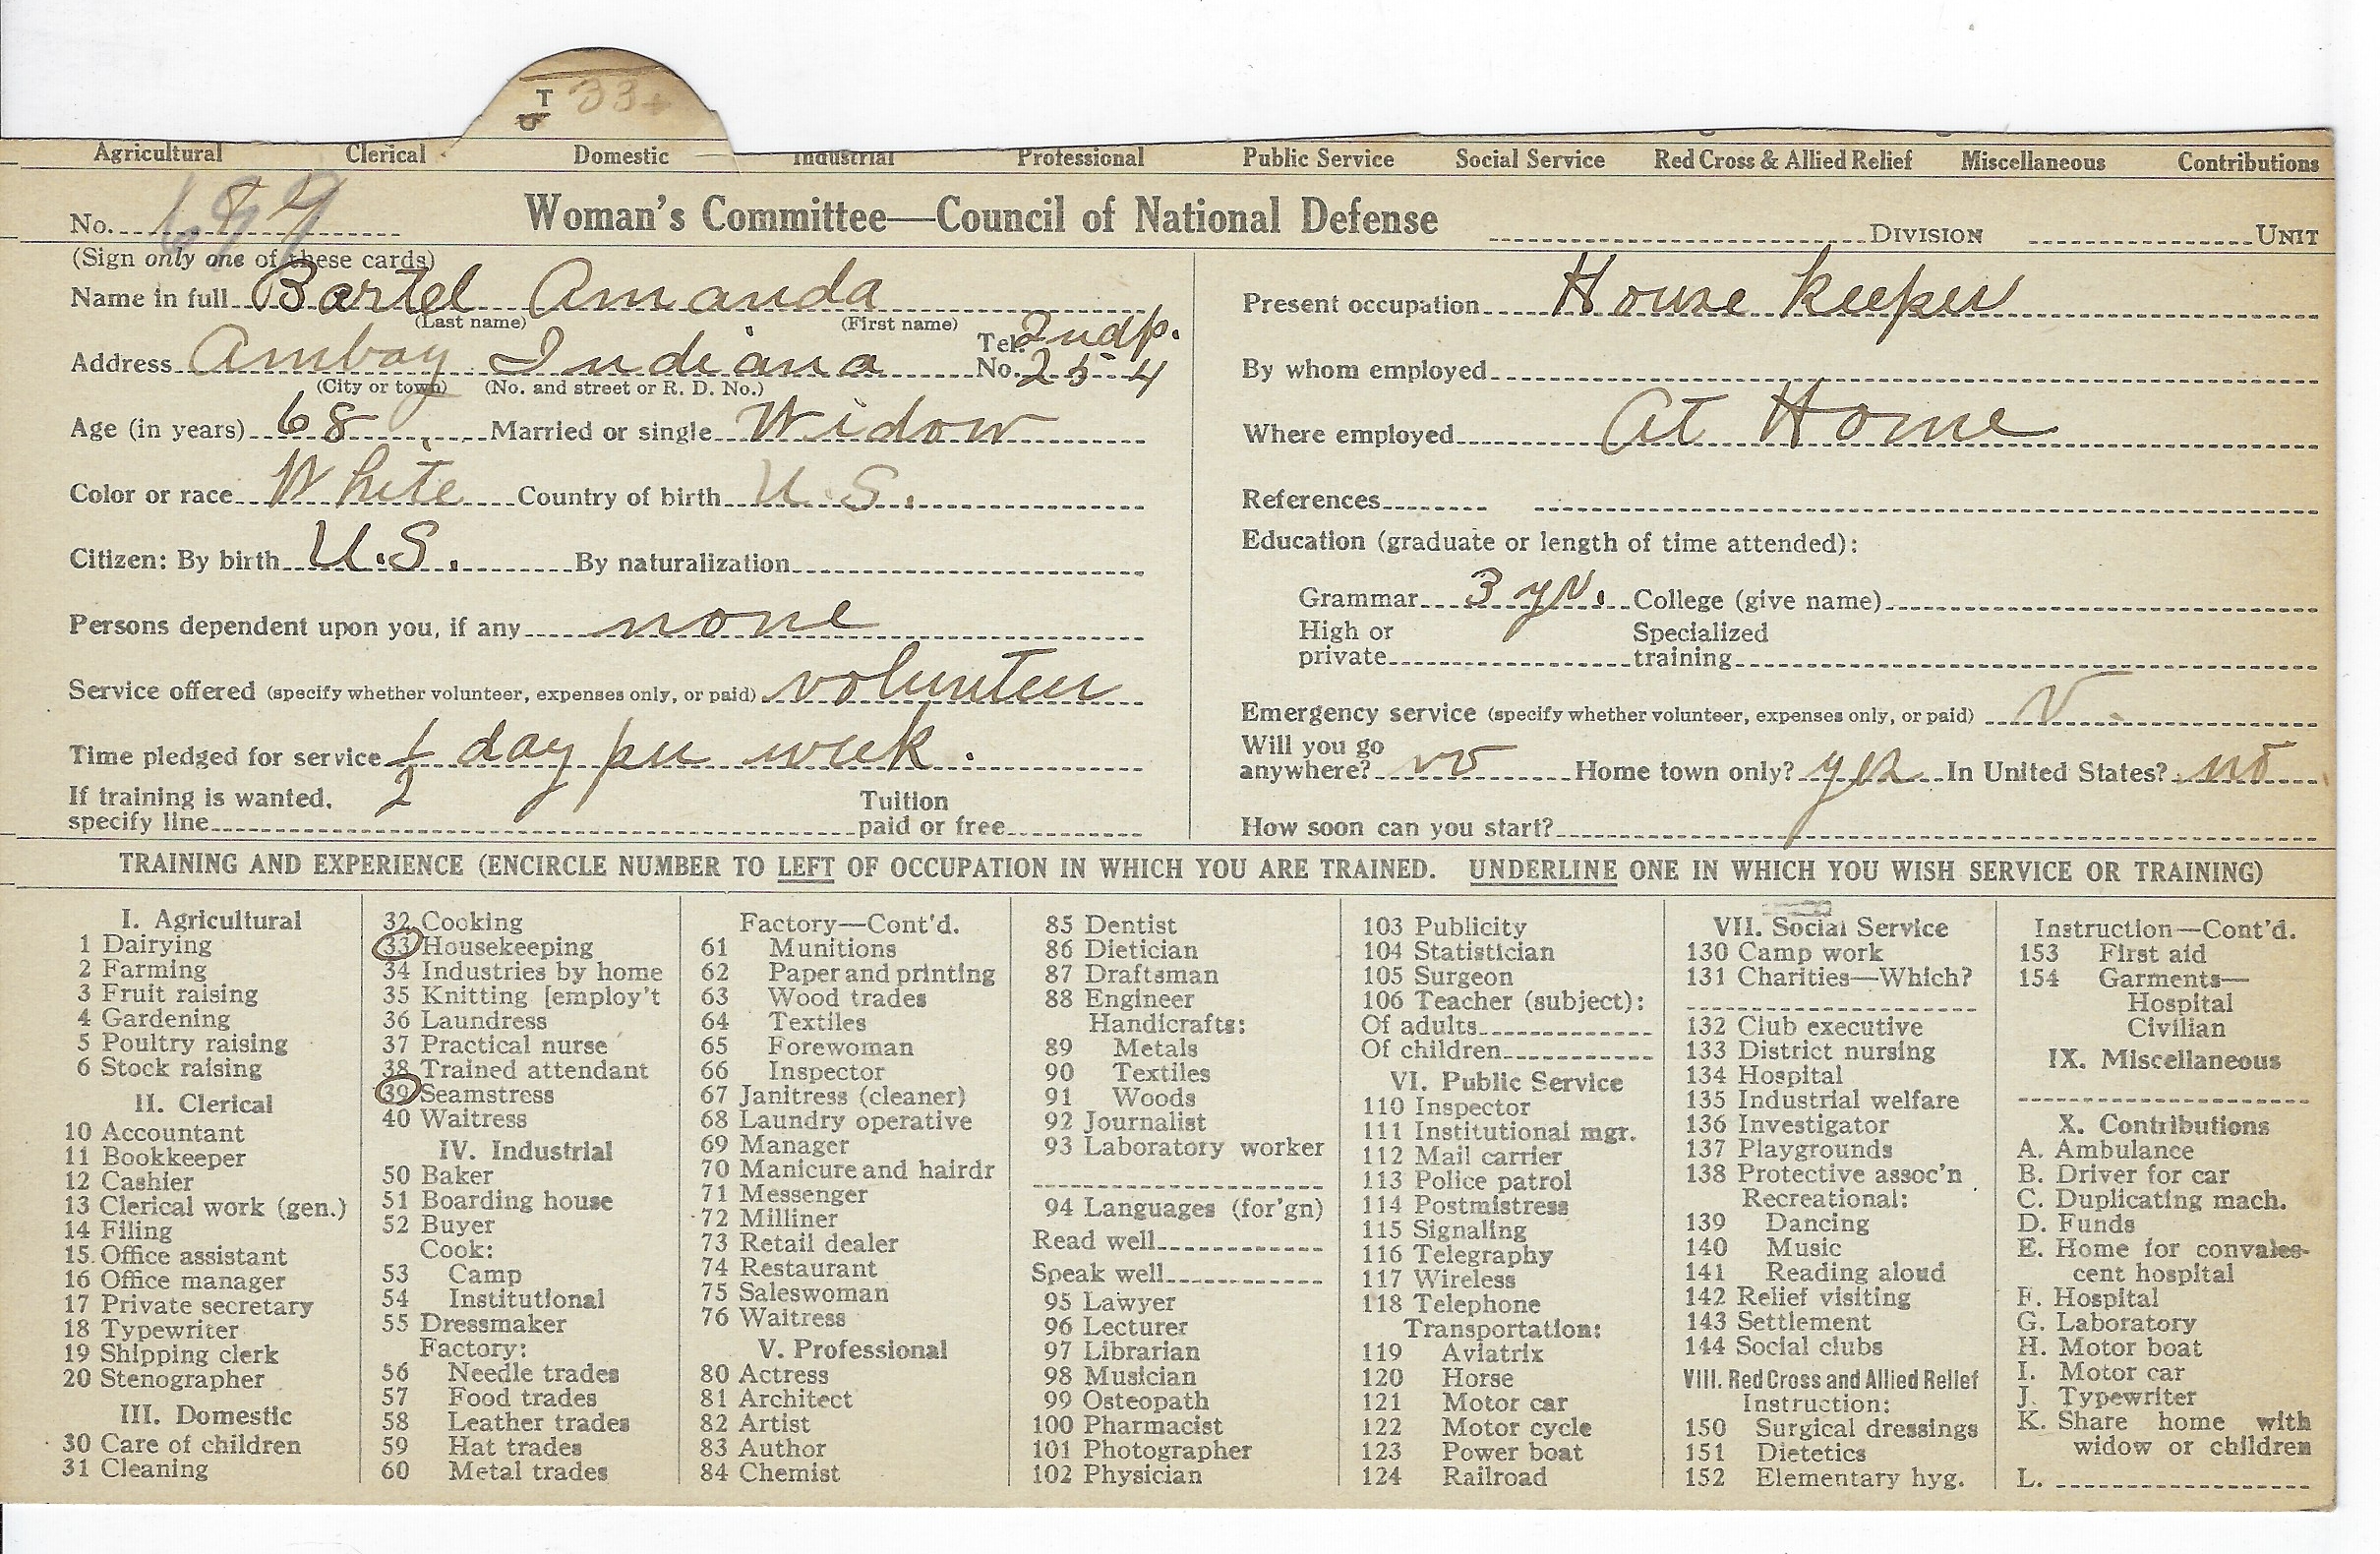 T 33+
Agricultural Clerical Domestic Industrial Professional Public Service Social Service Red Cross & Allied Relief Miscellaneous Contributions
No. Woman's Committee—Council of National Defense DIVISION UNIT
(Sign only one of these cards)
Name in full Bartel Amanda
(Last name) (First name)
Address Amboy Indiana Tel. No. Indp. 254
(City or town) (No. and street or R. D. No.)
Age (in years) 68 Married or single Widow
Color or race White Country of birth U.S.
Citizen: By birth U.S. By naturalization
Persons dependent upon you, if any none
Service offered (specify whether volunteer, expenses only, or paid) volunteer
Time pledged for service 1/2 day per week.
If training is wanted, specify line Tuition paid or free
Present occupation House keeper
By whom employed
Where employed At Home
References
Education (graduate or length of time attended):
Grammar 3 yr. College (give name)
High or private Specialized training
Emergency service (specify whether volunteer, expenses only, or paid) V.
Will you go anywhere? no Home town only? yes In United States? no
How soon can you start?
TRAINING AND EXPERIENCE (ENCIRCLE NUMBER TO LEFT OF OCCUPATION IN WHICH YOU ARE TRAINED. UNDERLINE ONE IN WHICH YOU WISH SERVICE OR TRAINING)
I. Agricultural
1 Dairying
2 Farming
3 Fruit raising
4 Gardening
5 Poultry raising
6 Stock raising
II. Clerical
10 Accountant
11 Bookkeeper
12 Cashier
13 Clerical work (gen.)
14 Filing
15 Office assistant
16 Office manager
17 Private secretary
18 Typewriter
19 Shipping clerk
20 Stenographer
III. Domestic
30 Care of children
31 Cleaning
32 Cooking
33 Housekeeping
34 Industries by home
35 Knitting [employ't
36 Laundress
37 Practical nurse
38 Trained attendant
39 Seamstress
40 Waitress
IV. Industrial
50 Baker
51 Boarding house
52 Buyer
Cook:
53 Camp
54 Institutional
55 Dressmaker
Factory:
56 Needle trades
57 Food trades
58 Leather trades
59 Hat trades
60 Metal trades
Factory—Cont'd.
61 Munitions
62 Paper and printing
63 Wood trades
64 Textiles
65 Forewoman
66 Inspector
67 Janitress (cleaner)
68 Laundry operative
69 Manager
70 Manicure and hairdr
71 Messenger
72 Milliner
73 Retail dealer
74 Restaurant
75 Saleswoman
76 Waitress
V. Professional
80 Actress
81 Architect
82 Artist
83 Author
84 Chemist
85 Dentist
86 Dietician
87 Draftsman
88 Engineer
Handicrafts:
89 Metals
90 Textiles
91 Woods
92 Journalist
93 Laboratory worker
94 Languages (for'gn)
Read well
Speak well
95 Lawyer
96 Lecturer
97 Librarian
98 Musician
99 Osteopath
100 Pharmacist
101 Photographer
102 Physician
103 Publicity
104 Statistician
105 Surgeon
106 Teacher (subject):
Of adults
Of children
VI. Public Service
110 Inspector
111 Institutional mgr.
112 Mail carrier
113 Police patrol
114 Postmistress
115 Signaling
116 Telegraphy
117 Wireless
118 Telephone
Transportation:
119 Aviatrix
120 Horse
121 Motor car
122 Motor cycle
123 Power boat
124 Railroad
VII. Social Service
130 Camp work
131 Charities—Which?
132 Club executive
133 District nursing
134 Hospital
135 Industrial welfare
136 Investigator
137 Playgrounds
138 Protective assoc'n
Recreational:
139 Dancing
140 Music
141 Reading aloud
142 Relief visiting
143 Settlement
144 Social clubs
VIII. Red Cross and Allied Relief
Instruction:
150 Surgical dressings
151 Dietetics
152 Elementary hyg.
Instruction—Cont'd.
153 First aid
154 Garments—
Hospital
Civilian
IX. Miscellaneous
X. Contributions
A. Ambulance
B. Driver for car
C. Duplicating mach.
D. Funds
E. Home for convales-
cent hospital
F. Hospital
G. Laboratory
H. Motor boat
I. Motor car
J. Typewriter
K. Share home with
widow or children
L.